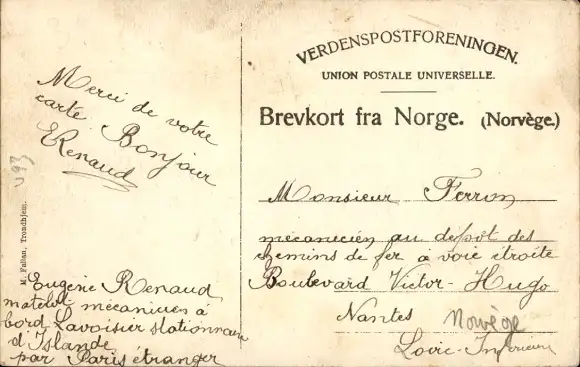 VERDENSPOSTFORENINGEN.
UNION POSTALE UNIVERSELLE.
Brevkort fra Norge. (Norvège.)
Merci de votre
carte. Bonjour
ERenaud
493
M. Fallan, Trondhjem.
Eugène Renaud
matelot mécanicien à
bord Lavoisier stationnaire
d'Islande
par Paris étranger
Monsieur Ferron
mécanicien au depôt des
chemins de fer a voie étroite
Boulevard Victor-Hugo
Nantes
Norvège
Loire-Inférieure